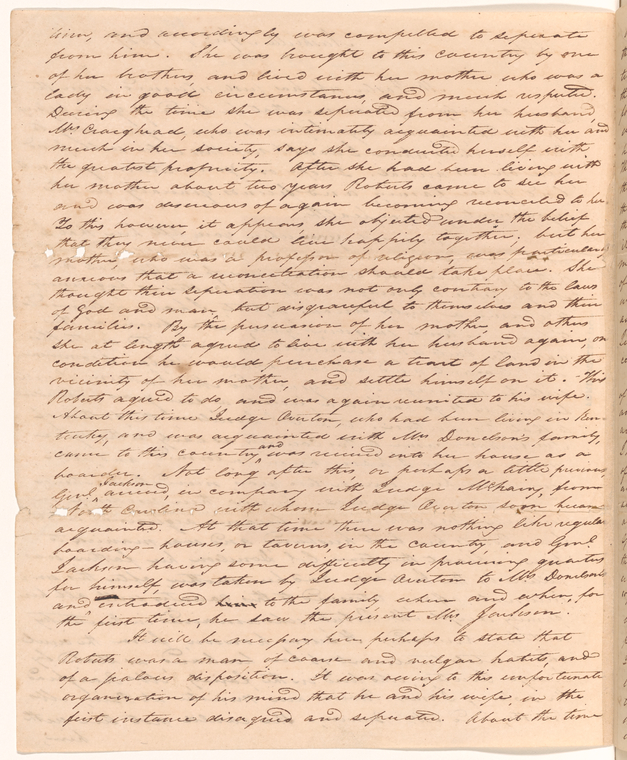 him, and accordingly was compelled to seperate
from him. She was brought to this country by one
of her brothers, and lived with her mother who was a
lady in good circumstances, and much respected.
During the time she was seperated from her husband,
Mrs Craighead, who was intimately acquainted with her and
much in her society, says she conducted herself with
the greatest propriety. After she had been living with
her mother about two years, Roberts came to see her
and was desireous of again becoming reconciled to her.
To this however, it appears she objected under the belief
that they never could live happily together, but her
mother who was a professor of religion, was particularly
anxious that a reconciliation should take place. She
thought their seperation was not only contrary to the laws
of God and man, but disgraceful to themselves and their
families. By the persuasion of her mother, and others
she at length agreed to live with her husband again, on
condition he would purchase a tract of land in the
vicinity of her mother, and settle himself on it. This
Roberts agreed to do, and was again reunited to his wife.
About this time Judge Overton, who had been living in Ken
tucky, and was acquainted with Mrs Donelson's family,
came to this country, and was received into her house as a
boarder. Not long after this or perhaps a little previous,
Genl Jackson arrived in company with Judge McNairy, from
North Carolina with whom Judge Overton soon became
acquainted. At that time there was nothing like regular
boarding-houses, or taverns, in the country, and Genl
Jackson having some difficulty in procuring quarters
for himself was taken by Judge Overton to Mrs Donelsons
and introduced to the family where and when, for
the first time, he saw the present Mrs Jackson.
It will be necessary here, perhaps to state that
Roberts was a man of coarse and vulgar habits, and
of a jealous disposition. It was owing to this unfortunate
organization of his mind that he and his wife, in the
first instance disagreed and seperated. About the time